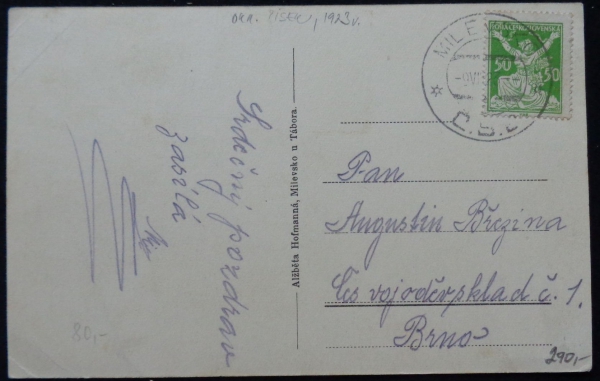 okr. PÍSEK, 1923 v.
MILE
Č.S.
50 50
Srdečný pozdrav
zasílá
Alžběta Hofmanná, Milevsko u Tábora.
Pan
Augustin Březina
Čs vojoděvsklad č. 1.
Brno
80,-
290,-